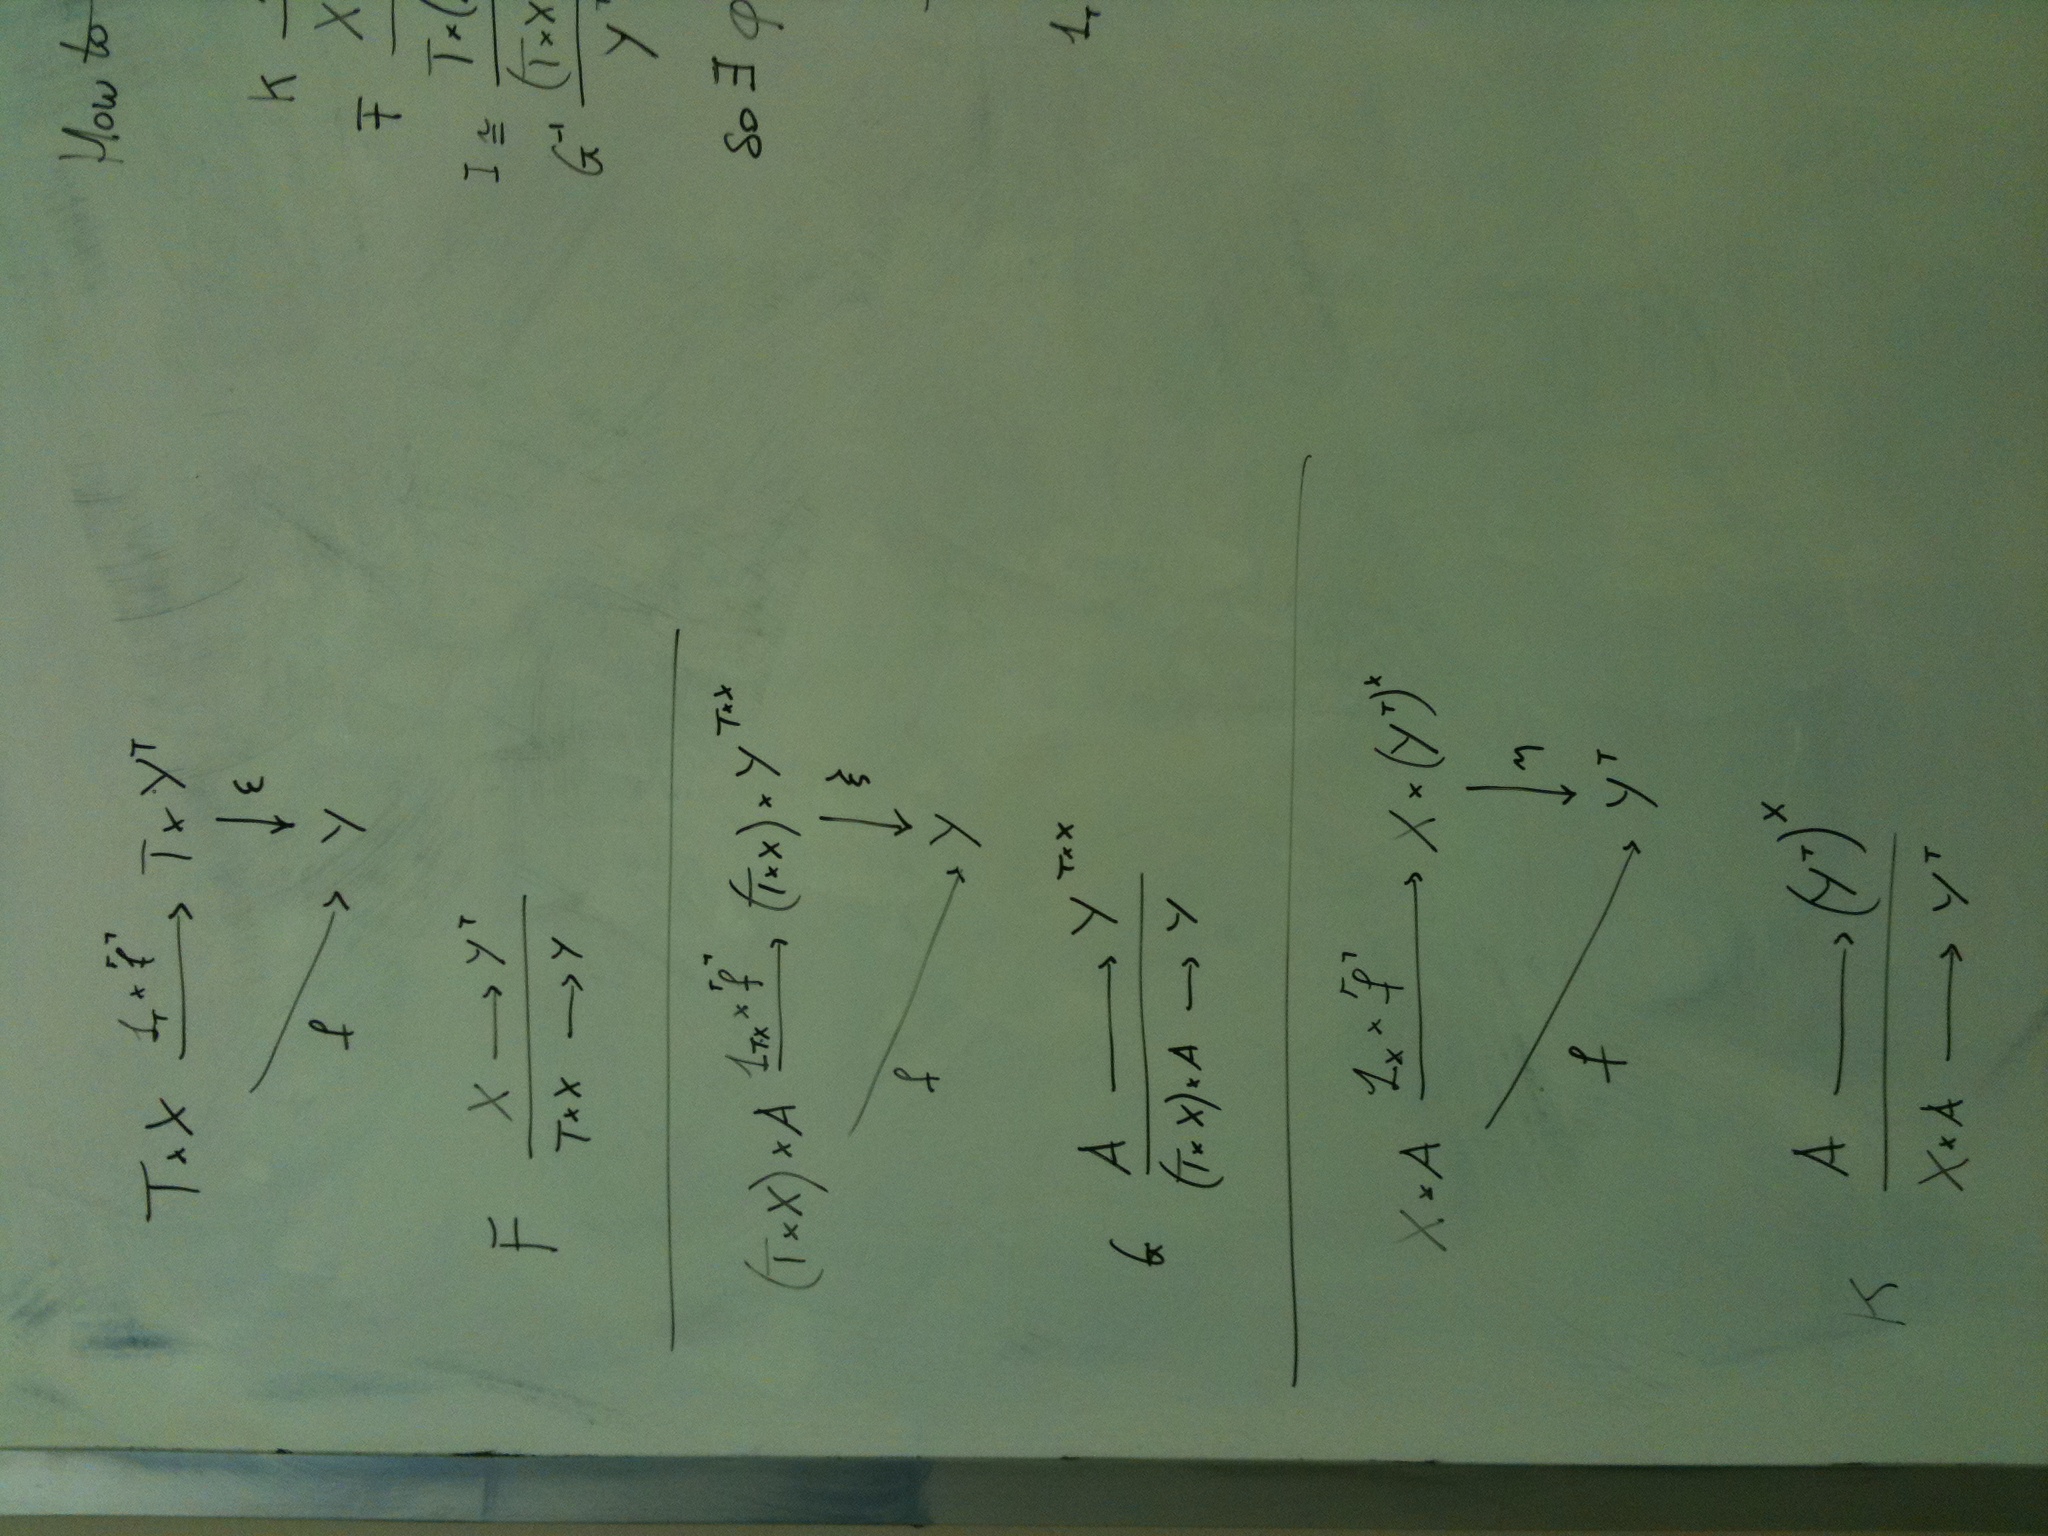 T × X 1_T × ⌜f⌝ → T × Y^T
↓ ε
f Y
F X → Y^T
T×X → Y
(T×X) × A 1_{T×X} × ⌜f⌝ → (T×X) × Y^{T×X}
↓ ξ
f Y
G A → Y^{T×X}
(T×X)×A → Y
X × A 1_X × ⌜f⌝ → X × (Y^T)^X
↓ η
f Y^T
K A → (Y^T)^X
X×A → Y^T
How to
K
F X
T×(
I ≅
(T×X
G^{-1}
Y^T
so ∃ φ
1_T